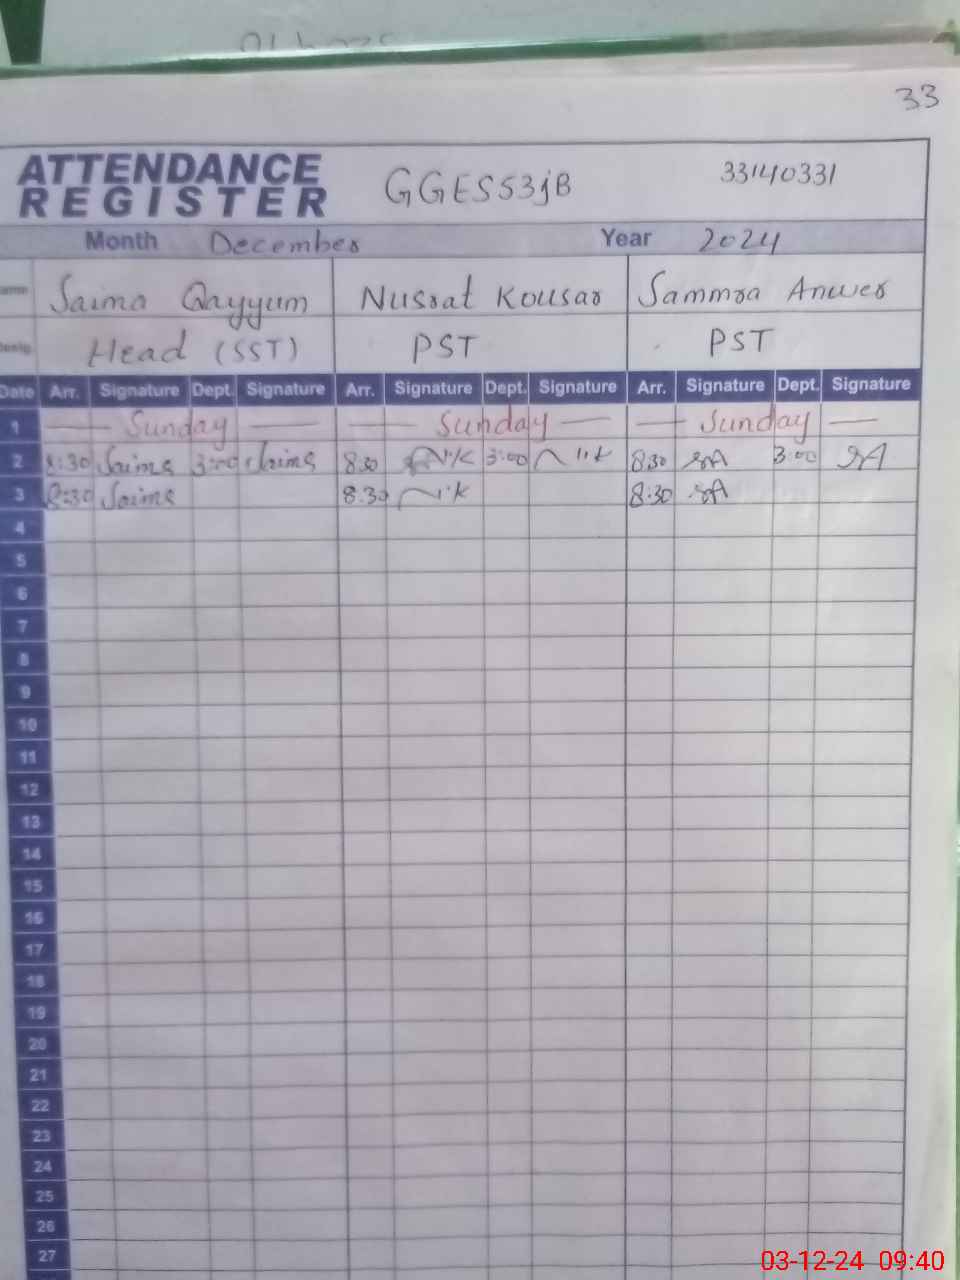 33
ATTENDANCE
REGISTER
GGES53jB
33140331
Month December Year 2024
Saima Qayyum Nusrat Kousar Sammra Anwer
Desig. Head (SST) PST PST
Date Arr. Signature Dept. Signature Arr. Signature Dept. Signature Arr. Signature Dept. Signature
1 Sunday Sunday Sunday
2 8:30 Saima 3:00 Saima 8:30 N.K 3:00 N.K 8:30 SA 3:00 SA
3 8:30 Saima 8:30 N.K 8:30 SA
4
5
6
7
8
9
10
11
12
13
14
15
16
17
18
19
20
21
22
23
24
25
26
27
03-12-24 09:40